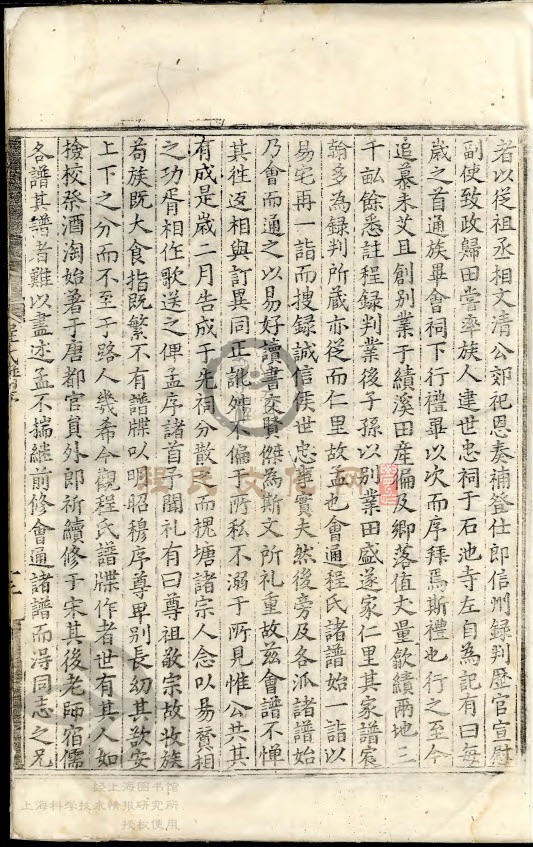 者以從祖丞相文清公郊祀恩奏補登仕郎信州錄判歷官宣慰
副使致政歸田嘗率族人建世忠祠于石池寺左自為記有曰每
歲之首通族畢會祠下行禮畢以次而序拜焉斯禮也行之至今
追慕未艾且創別業于績溪田産徧及鄉落值丈量歙績兩地三
千畝餘悉註程録判業後子孫以別業田盛遂家仁里其家譜宸
翰多為録判所蔵亦從而仁里故孟也會通程氏諸譜始一詣以
易宅再一詣而搜録誠信侯世忠事實夫然後旁及各派諸譜始
乃會而通之以易好讀書交賢傑為斯文所礼重故兹會譜不憚
其徃返相與訂異同正訛舛不偏于所私不溺于所見惟公共其
有成是歳二月告成于先祠分散之而槐塘諸宗人念以易賛相
之功胥相作歌送之俾孟序諸首予聞礼有曰尊祖敬宗故收族
苟族既大食指既繁不有譜牒以明昭穆序尊卑別長幼其欲安
上下之分而不至于路人幾希今觀程氏譜牒作者世有其人如
撿校祭酒淘始著于唐都官員外郎祈續修于宋其後老師宿儒
各譜其譜者難以盡述孟不揣継前修會通諸譜而淂同志之兄
程氏
十二
經上海图书馆
上海科学技术情报研究所
授权使用